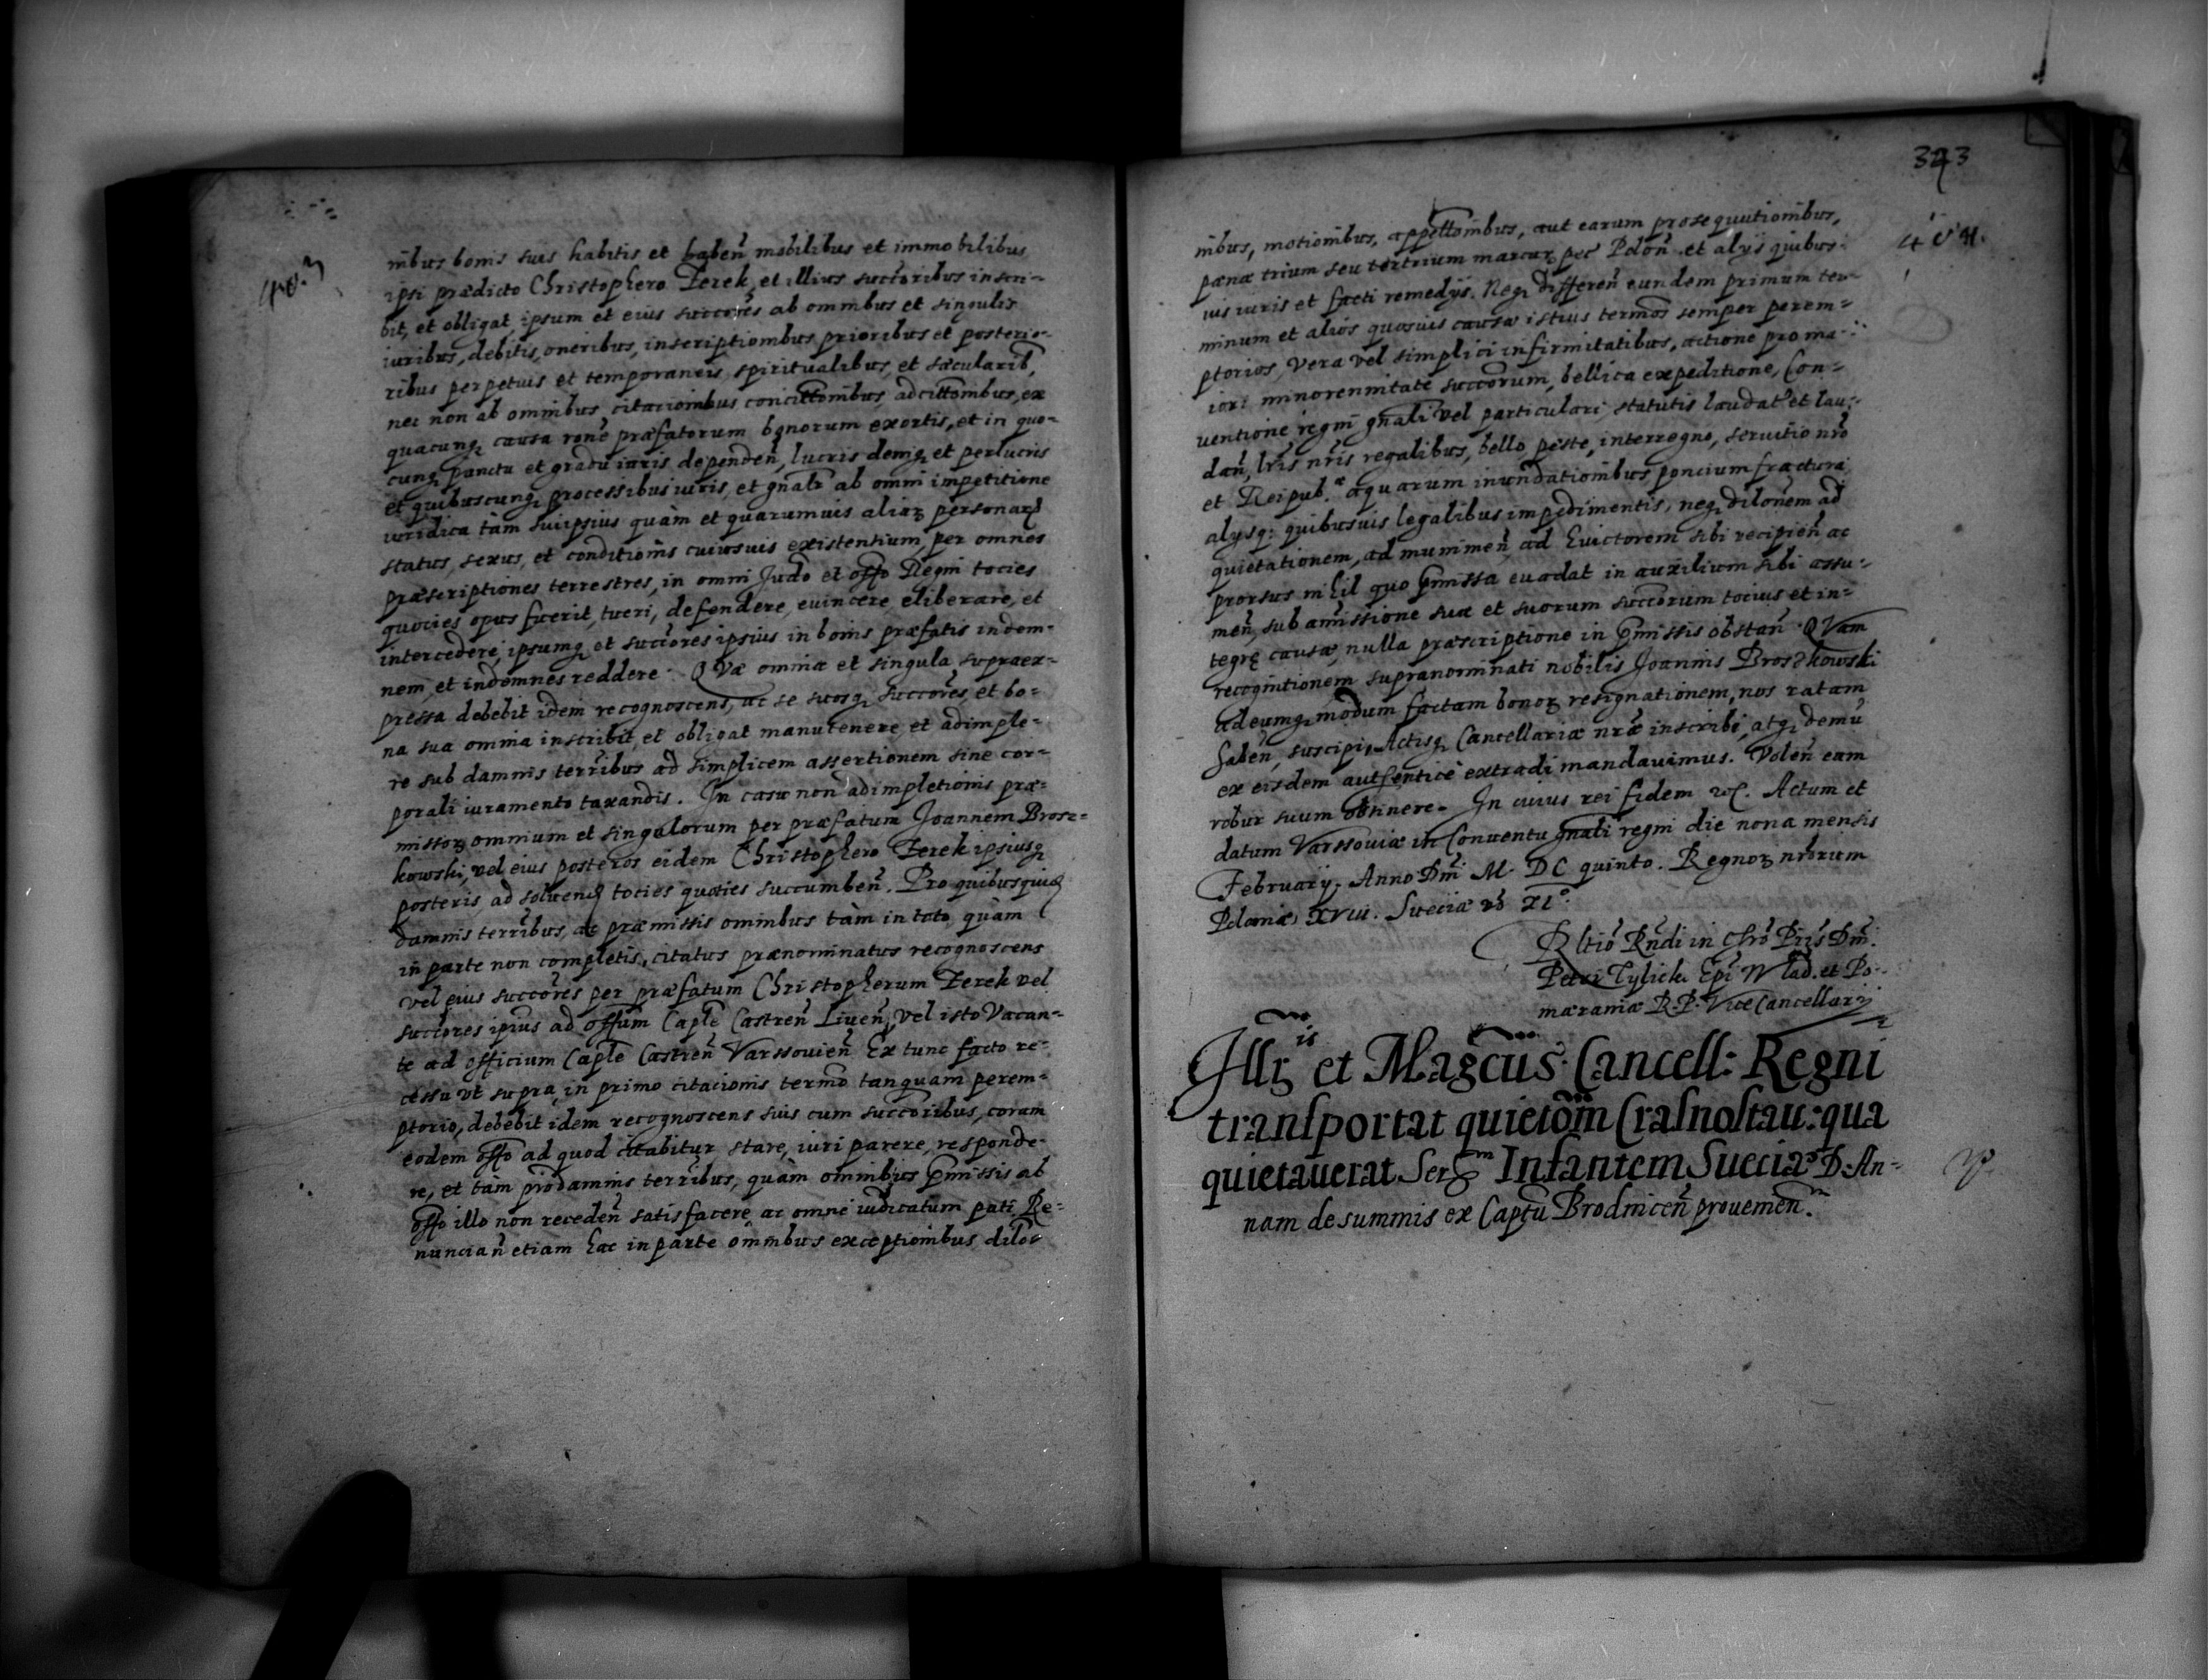 403
nibus bonis suis habitis et haben̄ mobilibus et immobilibus
ipsi prædicto Christophero Zerek, et illius succ̄oribus inscri-
bit, et obligat, ipsum et eius succōres ab omnibus et singulis
iuribus, debitis, oneribus, inscriptionibus prioribus et posterio-
ribus perpetuis et temporaneis, spiritualibus, et sæcularib,
nec non ab omnibus citacionibus concitt̄onibus, adcitt̄onibus, ex
quacunq₃ causa rōne præfatorum bonorum exortis, et in quo-
cunq₃ punctu et gradu iuris dependen̄, lucris deniq₃ et perlucris
et quibuscunq₃ processibus iuris, et gn̄alr ab omni impetitione
iuridica tàm suiipsius quàm et quarumuis aliaꝝ personaꝝ
status, sexus, et conditionis cuiusuis existentium, per omnes
præscriptiones terrestres, in omni Jud̄o et off̄o Regni tocies
quocies opus fuerit, tueri, defendere, euincere, eliberare, et
intercedere, ipsumq₃ et succōres ipsius in bonis præfatis indem-
nem, et indemnes reddere. QVæ omnia et singula supraex-
pressa debebit idem recognoscens, ac se suosq₃ succōres, et bo-
na sua omnia inscribit, et obligat manutenere, et adimple-
re sub damnis terr̄ibus ad simplicem assertionem sine cor-
porali iuramento taxandis. In casu non adimpletionis præ-
missoꝝ omnium et singulorum per præfatum Joannem Brosz-
kowski, vel eius posteros eidem Christophero Zerek ipsiusq₃
posteris, ad soluend tocies quoties succumben̄. Pro quibusquid
damnis terr̄ibus, ac præmissis omnibus tàm in toto, quàm
in parte non completis, citatus prænominatus recognoscens
vel eius succōres per præfatum Christopherum Zerek vel
succōres ipīus ad offīum Caplē Castren̄ Liuen̄, vel isto Vacan-
te ad officium Caplē Castren̄ Varssouien̄ Ex tunc facto re-
cessu vt supra, in primo citacionis termō tanquam perem-
ptorio, debebit idem recognoscens suis cum succōribus, coram
eodem off̄o ad quod citabitur stare, iuri parere, responde-
re, et tàm pro damnis terr̄ibus, quàm omnibus p̄missis ab
off̄o illo non receden̄ satisfacere, ac omne iudicatum pati. Re-
nuncian̄ etiam hac in parte omnibus exceptionibus dilō-
343
nibus, motionibus, appell̄onibus, aut earum prosequutionibus,
pænæ trium seu ter trium marcaꝝ pec Polon̄. et alÿs quibus-
uis iuris et facti remedÿs. Neq₃ differen̄ eundem primum ter-
minum et alios quosuis causæ istius term̄os semper perem-
ptorios, vera vel simplici infirmitatibus, actione pro ma-
iori minorennitate succōrum, bellica expeditione, Con-
uentione regni gn̄ali vel particulari, statutis laudat et lau-
dan̄, lrīs nrīs regalibus, bello, peste, interregno, seruitio nrō
et Reipub.æ aquarum inundationibus poncium fractura,
alÿsq: quibusuis legalibus impedimentis, neq₃ dilōnem ad
quietationem, ad munimen̄, ad Euictorem sibi recipien̄ ac
prorsus nihil quo p̄missa euadat in auxilium sibi assu-
men̄, sub amissione suæ et suorum succōrum tocius et in-
tegrę causæ, nulla præscriptione in p̄missis obstan̄. QVam
recognitionem supranominati nobilis Joannis Broszkowski
adeumq₃ modum factam bonoꝝ resignationem, nos ratam
haben̄, suscipi, Actisq₃ Cancellariæ nr̄æ inscribi, atq₃ demū
ex eisdem autħenticè extradi mandauimus. Volen̄ eam
robur suum obtinere. In cuius rei fidem &c. Actum et
datum Varssouiæ in Conuentu gn̄ali regni die nona mensis
Februarÿ. Anno Dn̄i M. DC quinto. Regnoꝝ nrōrum
Poloniæ XVIII. Sueciæ vō XI°.
Rltiō Rn̄di in Chrō Prīs Dn̄i.
Petri Tylicki Epī Wlad. et Po-
mæraniæ R.P. ViceCancellarij
Illꝝis et Magc̄us Cancell: Regni
transportat quietōm Crasnostau: qua
quietauerat Serm Infantem Sueciæ D. An-
nam de summis ex Captū Brodnicen̄ prouenien̄.